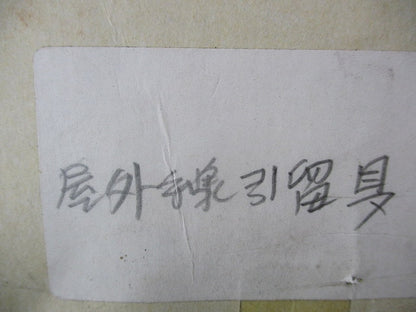 屋外線引留具